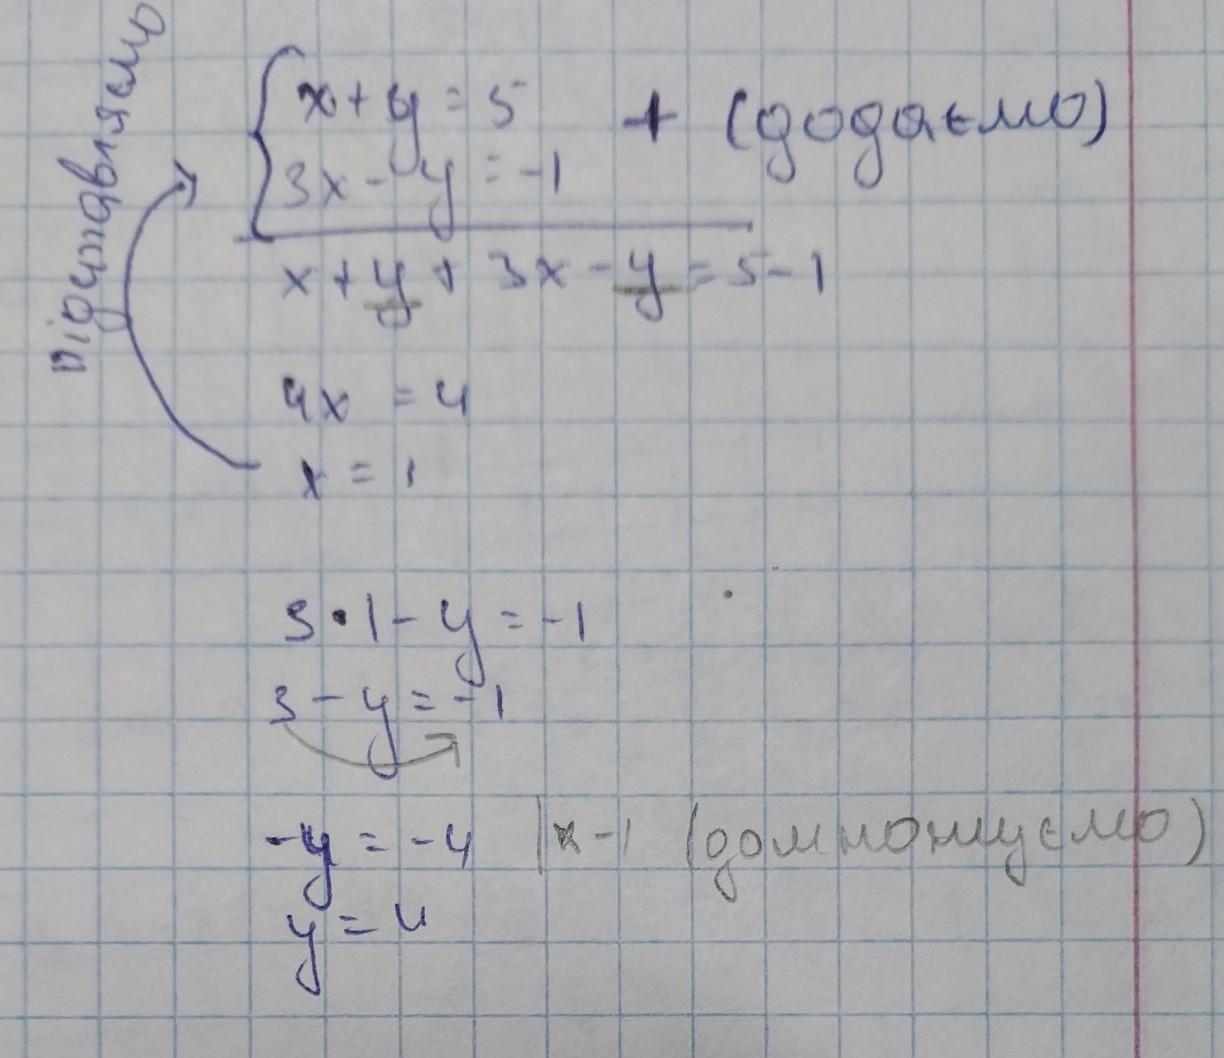 підставляємо
x + y = 5 + (додаємо)
3x - y = -1
x + y + 3x - y = 5 - 1
4x = 4
x = 1
3 • 1 - y = -1
3 - y = -1
-y = -4 |x -1 (домножуємо)
y = 4